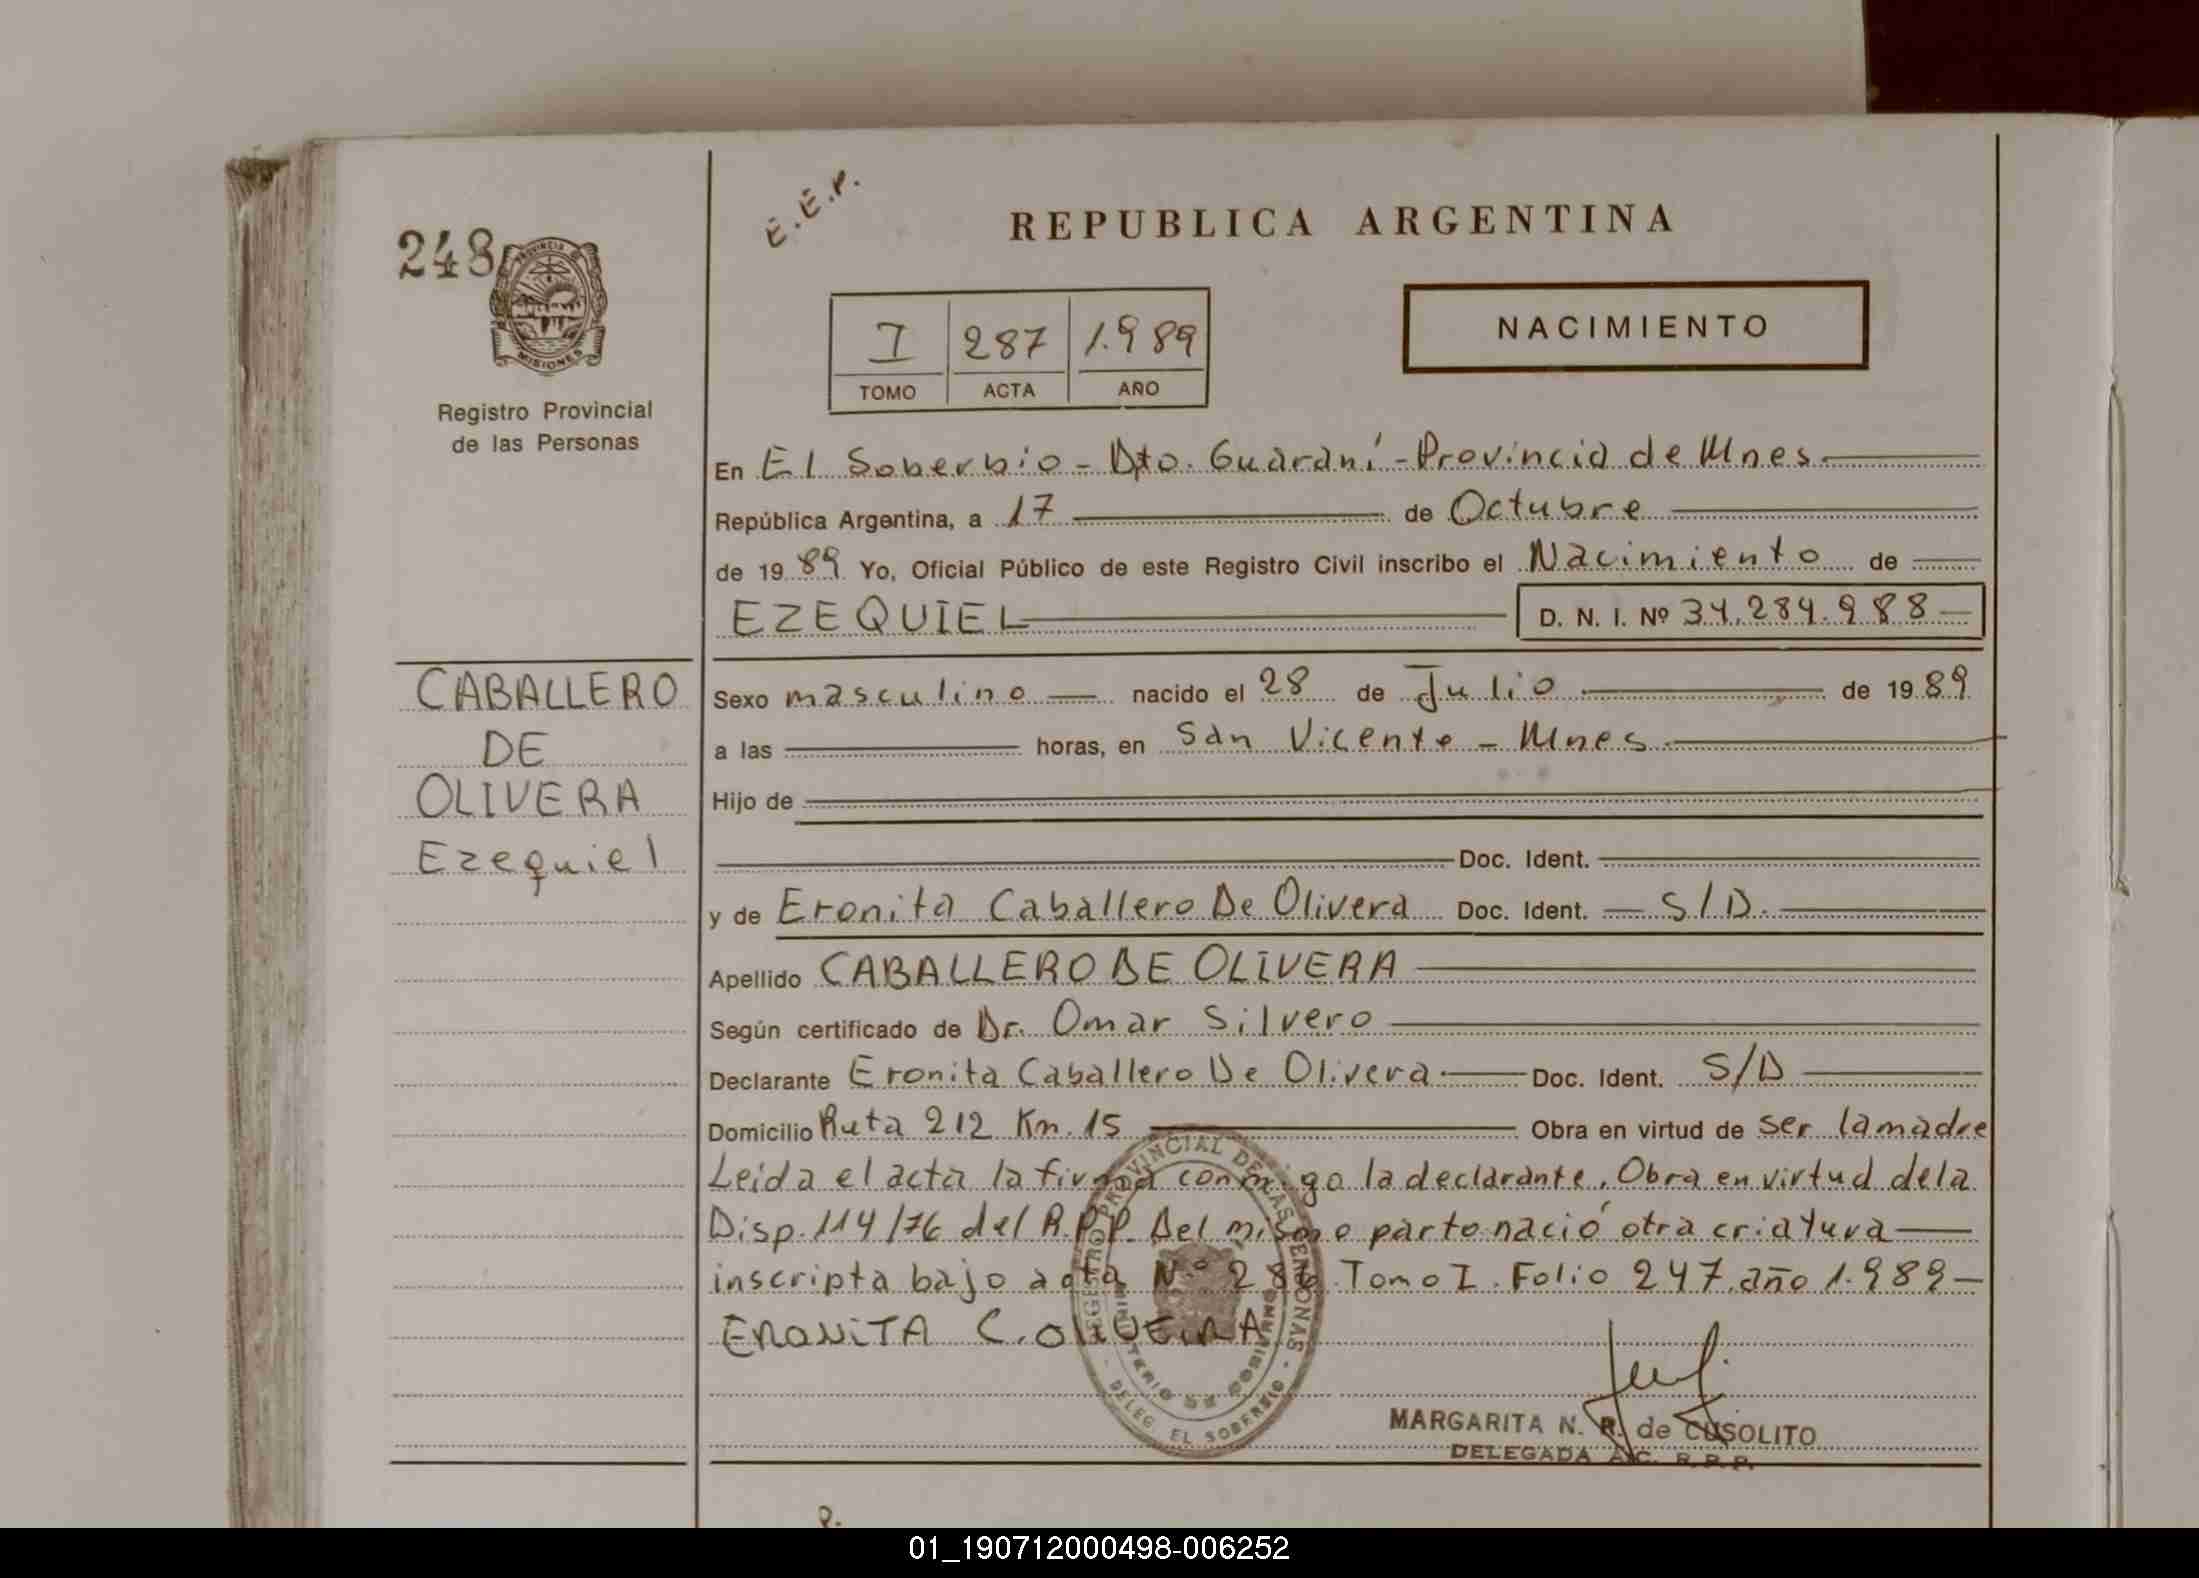 E.E.P.
REPUBLICA ARGENTINA
248
PROVINCIA
MISIONES
Registro Provincial
de las Personas
I 287 1.989
TOMO ACTA AÑO
NACIMIENTO
En El Soberbio - Dto. Guaraní - Provincia de Mnes.
República Argentina, a 17 de Octubre
de 1989 Yo, Oficial Público de este Registro Civil inscribo el Nacimiento de
EZEQUIEL D. N. I. Nº 34.284.988
CABALLERO
DE
OLIVERA
Ezequiel
Sexo masculino nacido el 28 de Julio de 1989
a las horas, en San Vicente - Mnes.
Hijo de
Doc. Ident.
y de Eronita Caballero De Olivera Doc. Ident. S/D.
Apellido CABALLERO DE OLIVERA
Según certificado de Dr. Omar Silvero
Declarante Eronita Caballero De Olivera Doc. Ident. S/D
Domicilio Ruta 212 Km. 15 Obra en virtud de ser la madre
Leida el acta la firma conmigo la declarante. Obra en virtud dela
Disp. 114/76 del R.P.P. Del mismo parto nació otra criatura
inscripta bajo acta N.º 286 Tomo I. Folio 247 año 1.989
ERONITA C. OLIVEIRA
REGISTRO PROVINCIAL DE LAS PERSONAS
MINISTERIO DE GOBIERNO
DELEG. EL SOBERBIO
MARGARITA N. R. de CUSOLITO
DELEGADA A/C. R.P.P.
01_190712000498-006252